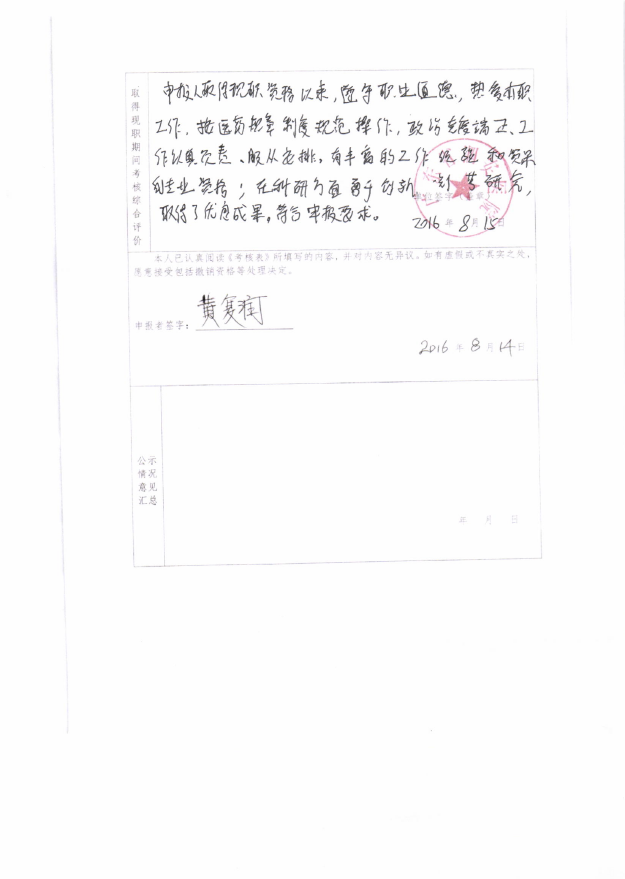 取得现职期间考核综合评价
申报人取得现职资格以来，遵守职业道德，热爱本职
工作，按医药规章制度规范操作，政治态度端正、工
作认真负责、服从安排，有丰富的工作经验和
专业资格；在科研方面勇于创新、研究，
取得了优良成果，符合申报要求。
2016年8月15日
本人已认真阅读《考核表》所填写的内容，并对内容无异议。如有虚假或不真实之处，
愿意接受包括撤销资格等处理决定。
申报者签字：黄复润
2016年8月14日
公示
情况
意见
汇总
年 月 日